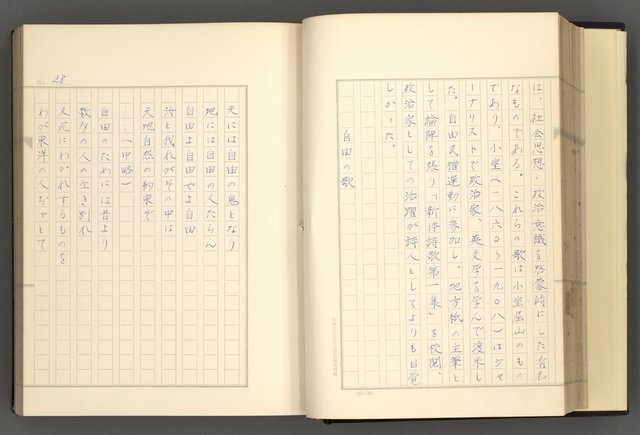 は、社会思想・政治意識を啓蒙詩にした有名
なものである。これらの歌は小室屈山のもの
であり、小室(一八六〇~一九〇八)はジャ
ーナリストで政治家、英文学を学んで渡米し
た。自由民権運動に参加し、地方紙の主筆と
して論陣を張り「新体詩歌第一集」を校閲、
政治家としての活躍が詩人としてよりも目覚
しかった。
自由の歌
No. 28
天には自由の鬼となり
地には自由の人たらん
自由よ自由や自由
汝と我れがその中は
天地自然の約束ぞ
……(中略)
自由のためには昔より
数多の人の生き別れ
又死にわかれするものを
わが東洋の人ぢゃとて